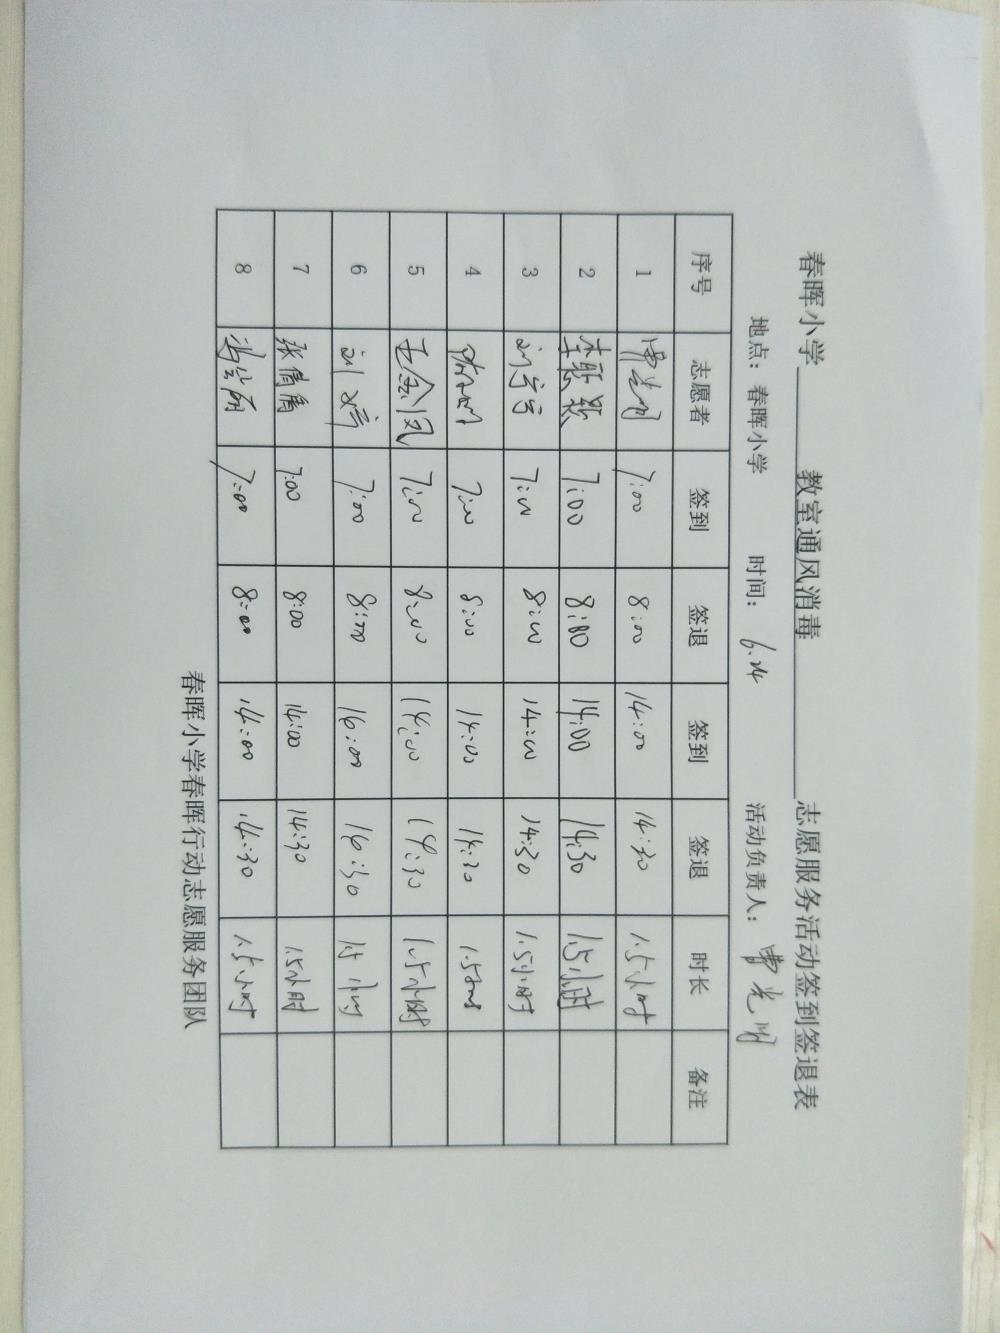 春晖小学 教室通风消毒 志愿服务活动签到签退表
地点：春晖小学 时间：6.24 活动负责人：
序号 志愿者 签到 签退 签到 签退 时长 备注
1 7:00 8:00 14:00 14:30 1.5小时
2 7:00 8:00 14:00 14:30 1.5小时
3 7:00 8:00 14:00 14:30 1.5小时
4 7:00 8:00 14:00 14:30
5 王金凤 7:00 8:00 14:00 14:30 1.5小时
6 刘婷 7:00 8:00 16:00 16:30 1.5小时
7 张倩倩 7:00 8:00 14:00 14:30 1.5小时
8 7:00 8:00 14:00 14:30 1.5小时
春晖小学春晖行动志愿服务团队